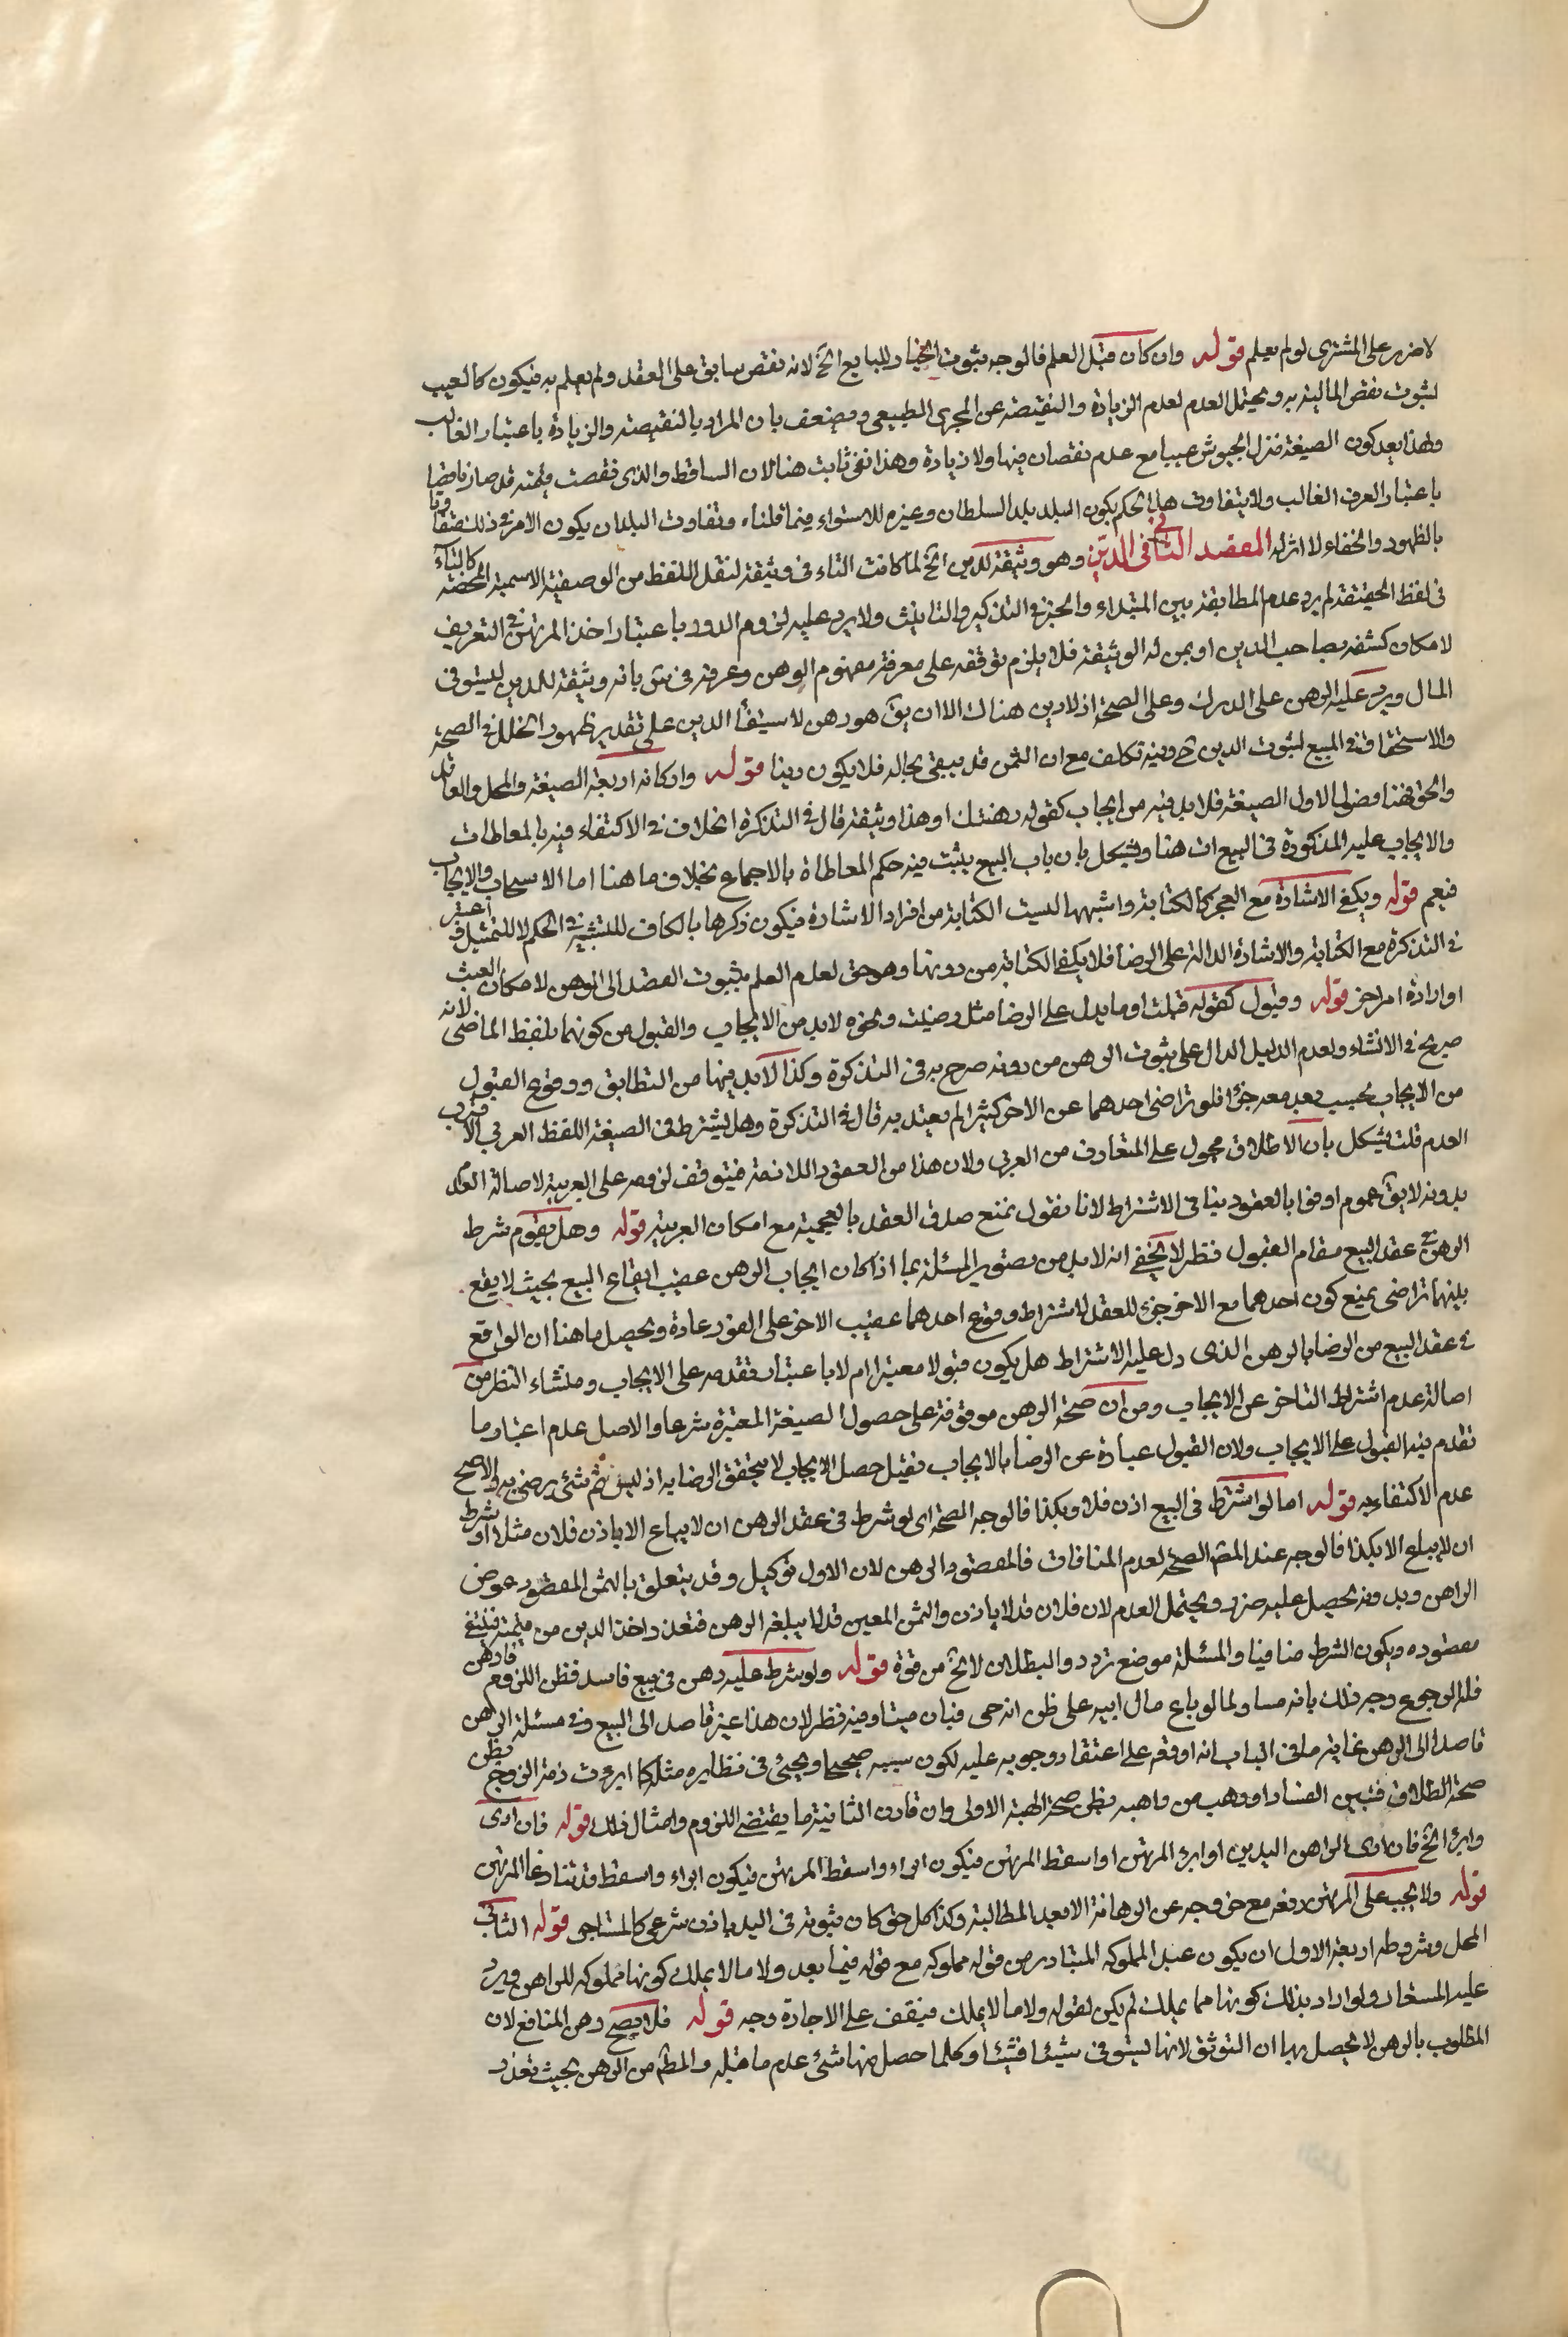 لا ضرر على المشترى لو لم يعلم قوله وان كان قبل العلم فالوجه ثبوت الخيار للبايع الخ لانه نقص سابق على العقد ولم يعلم به فيكون كالعيب
لثبوت نقص المالية به ويحتمل العدم لعدم الزيادة والنقيصة عن المجرى الطبيعى ويضعف بان المراد بالنقيصة والزيادة باعتبار الغالب
ولهذا يعد كون الضيعة منزل الجيوش عيبا مع عدم نقصان فيها ولا زيادة وهذا ثابت هنا لان الساقط والذى نقصت قيمته قد صار ناقصا
باعتبار العرف الغالب ولا يتفاوت هذا الحكم بكون البلد بلد السلطان وغيره للاستواء فيما قلناه وتفاوت البلدان بكون الامر فى ذلك متفاوتا
بالظهور والخفاء لا اثر له المقصد الثانى فى الدين وهو وثيقة لدين الخ لما كانت التاء فى وثيقة لنقل اللفظ من الوصفية الاسمية المحضة كالتاء
فى لفظ الحقيقة لم يرد عدم المطابقة بين المبتداء والخبر فى التذكير والتانيث ولا يرد عليه لزوم الدور باعتبار اخذ المرتهن فى التعريف
لامكان كشفه بصاحب الدين او بمن له الوثيقة فلا يلزم توقفه على معرفة مفهوم الرهن وعرفه فى س بانه وثيقة للمدين ليستوفى
المال ويرد عليه الرهن على الدرك وعلى الصحة اذ لا دين هناك الا ان يق هو رهن لاستيفا الدين على تقدير ظهور الخلل فى الصحة
والاستحقاق فى المبيع لثبوت الدين ح وفيه تكلف مع ان الثمن قد يبقى بحاله فلا يكون دينا قوله واركانه اربعة الصيغة والمحل والعاقد
والحق فهنا فصول الاول الصيغة فلابد فيه من ايجاب كقوله رهنتك او هذا وثيقة قال فى التذكرة الخلاف فى الاكتفاء فيه بالمعاطات
والايجاب عليه المذكورة فى البيع ات هنا ويشكل بان باب البيع يثبت فيه حكم المعاطاة بالاجماع بخلاف ما هنا اما الاستيجاب والايجاب
فنعم قوله ويكفى الاشارة مع العجز كالكتابة واشبهها ليست الكتابة من افراد الاشارة فيكون ذكرها بالكاف للتشبيه فى الحكم لا للتمثيل واعتبر
فى التذكرة مع الكتابة والاشارة الدالة على الرضا فلا يكفى الكتابة من دونها وهو حق لعدم العلم بثبوت القصد الى الرهن لامكان العبث
او ارادة امر اخر قوله وقبول كقوله قبلت او ما يدل على الرضا مثل رضيت ونحوه لابد من الايجاب والقبول من كونهما بلفظ الماضى لانه
صريح فى الانشاء ولعدم الدليل الدال على ثبوت الرهن من دونه صرح به فى التذكرة وكذا لابد فيها من التطابق ووقوع القبول
من الايجاب بحيث يعد معه جزءا فلو تراخى احدهما عن الاخر كثيرا لم يعتد به قال فى التذكرة وهل يشترط فى الصيغة اللفظ العربى الاقرب
العدم قلت يشكل بان الاطلاق محمول على المتعارف من العربى ولان هذا من العقود اللازمة فيتوقف لزومه على العربية لاصالة العدم
بدونه لا يق عموم اوفوا بالعقود ينافى الاشتراط لانا نقول نمنع صدق العقد بالعجمية مع امكان العربية قوله وهل يقوم شرط
الرهن فى عقد البيع مقام القبول نظر لا يخفى انه لابد من تصوير المسئلة بما اذا كان ايجاب الرهن عقيب ايقاع البيع بحيث لا يقع
بينهما تراخى يمنع كون احدهما مع الاخر جزء للعقد لاشتراط وقوع احدهما عقيب الاخر على الفور عادة ويحصل ما هنا ان الواقع
فى عقد البيع من الرضا بالرهن الذى دل عليه الاشتراط هل يكون قبولا معتبرا ام لا باعتبار تقدمه على الايجاب ومنشاء النظر من
اصالة عدم اشتراط التاخر عن الايجاب ومن ان صحة الرهن موقوفة على حصول الصيغة المعتبرة شرعا والاصل عدم اعتبار ما
تقدم فيه القبول على الايجاب ولان القبول عبارة عن الرضا بالايجاب فقبل حصل الايجاب لا يتحقق الرضا به اذ ليس ثم شئ يرضى به والاصح
عدم الاكتفاء به قوله اما لو اشترط فى البيع اذن فلان وبكذا فالوجه الصحة اى لو شرط فى عقد الرهن ان لا يباع الا باذن فلان مثلا او شرط
ان لا يباع الا بكذا فالوجه عند المص الصحة لعدم المنافات فالمقصود الرهن لان الاول توكيل وقد يتعلق بالثمن المقصود عوض
الراهن وبدونه يحصل عليه ضرر ويحتمل العدم لان فلان قد لا ياذن والثمن المعين قد لا يبلغه الرهن فتعذر اخذ الدين من قيمته فينتفى
مقصوده ويكون الشرط منافيا والمسئلة موضع تردد والبطلان لا يخ من قوة قوله ولو شرط عليه رهن فى بيع فاسد فظن اللزوم فرهن
فله الرجوع وجه ذلك بانه مساو لما لو باع مال ابيه على ظن انه حى فبان ميتا وفيه نظر لان هذا غير قاصد الى البيع وفى مسئلة الرهن
قاصد الى الرهن غاية ما فى الباب انه اوقعه على اعتقاد وجوبه عليه لكون سببه صحيحا ويجئ فى نظايره مثل كما ابرءت ذمة الزوج بظن
صحة الطلاق فتبين الفساد او وهب من واهبه بظن صحة الهبة الاولى وان قارن الثانية ما يقتضى اللزوم وامثال ذلك قوله فان ادى
وابرء الخ فان ادى الراهن الدين او ابرء المرتهن او اسقط المرتهن فيكون ابراء واسقط المرتهن فيكون ابراء واسقط قد تنازعا المرتهن
قوله ولا يجب على المرتهن دفعه مع خروجه عن الرهانة الا بعد المطالبة وكذا كل حق كان ثبوته فى اليد باذن شرعى كالمستاجر قوله الثانى
المحل وشروطه اربعة الاول ان يكون عينا مملوكه المتبادر من قوله مملوكه مع قوله فيما بعد ولا ما لا يملك كونها مملوكه للراهن ويرد
عليه المستعار ولو اراد بذلك كونها مما يملك لم يكن لقوله ولا ما لا يملك فيقف على الاجازة وجه قوله فلا يصح رهن المنافع لان
المطلوب بالرهن لا يحصل بها ان التوثق لانها تستوفى شيئا فشيئا وكلما حصل منها شئ عدم ما قبله والمط من الرهن بحيث تعذر